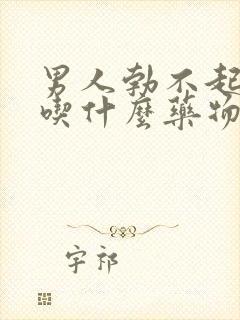 男人勃不起
喫什麼藥物
宇祁